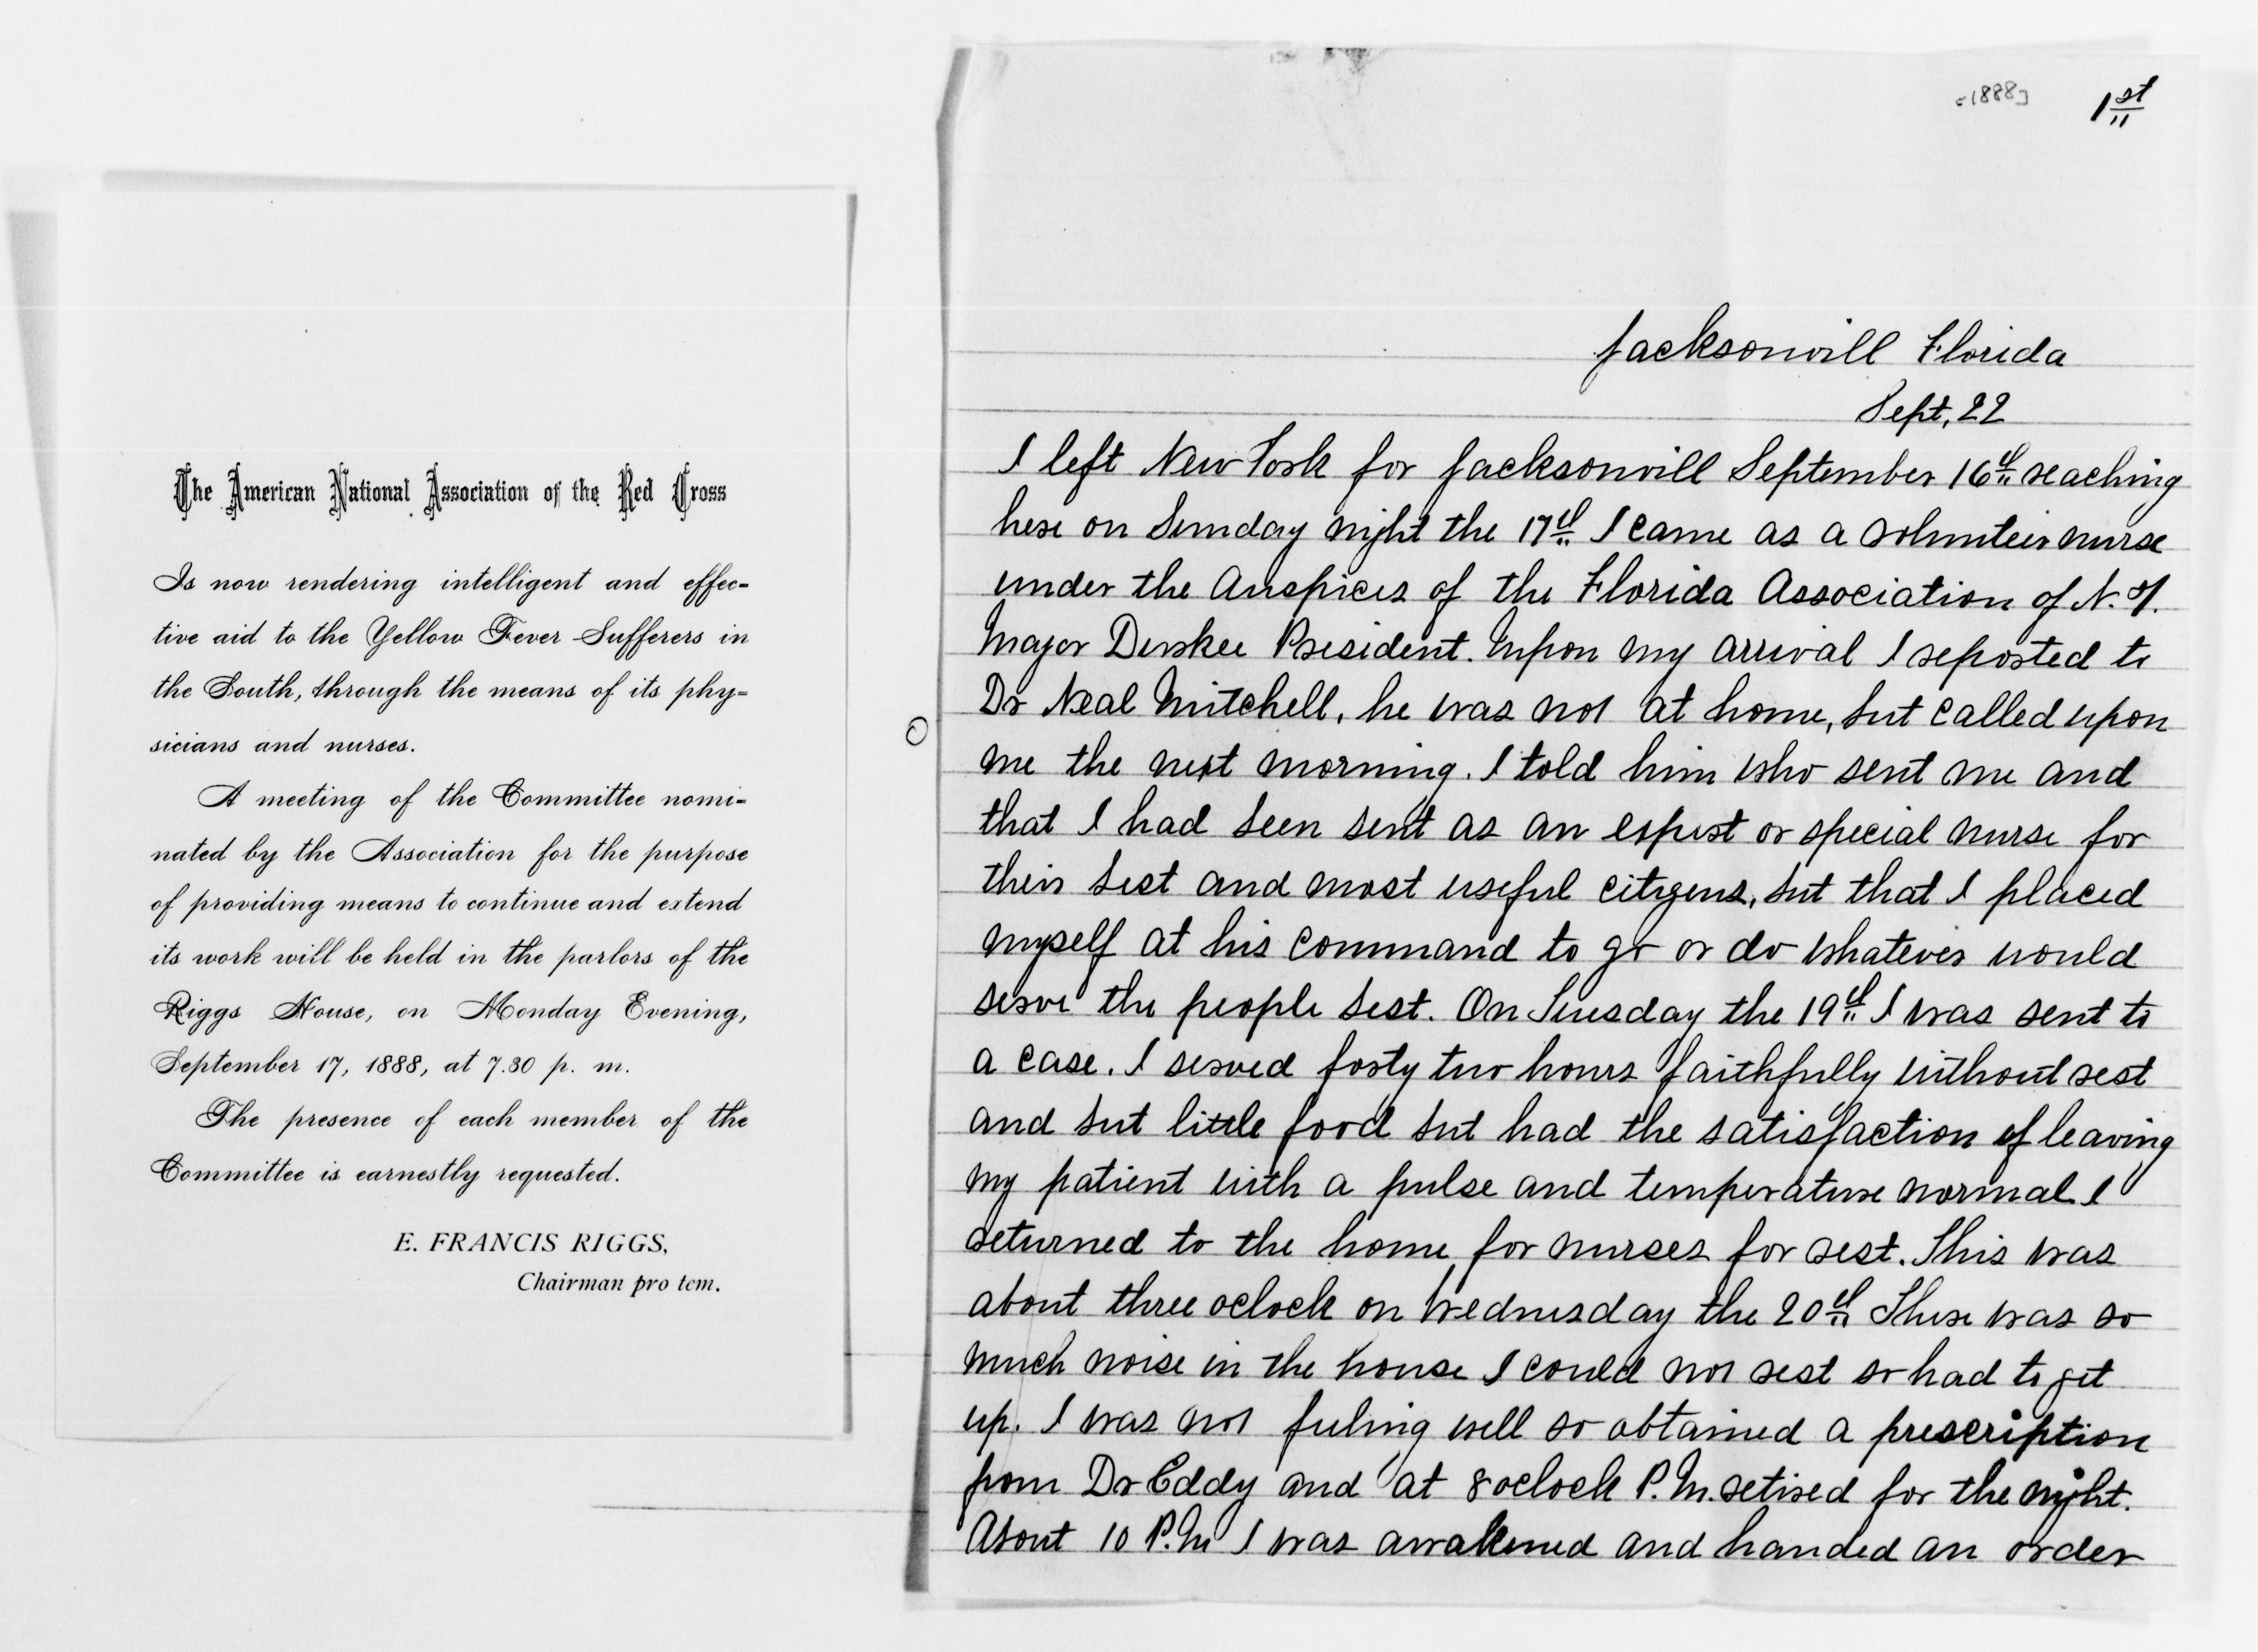 The American National Association of the Red Cross
Is now rendering intelligent and effec-
tive aid to the Yellow Fever Sufferers in
the South, through the means of its phy-
sicians and nurses.
A meeting of the Committee nomi-
nated by the Association for the purpose
of providing means to continue and extend
its work will be held in the parlors of the
Riggs House, on Monday Evening,
September 17, 1888, at 7.30 p. m.
The presence of each member of the
Committee is earnestly requested.
E. FRANCIS RIGGS,
Chairman pro tem.
[1888] 1st
Jacksonvill Florida
Sept, 22
I left New York for Jacksonvill September 16th reaching
here on Sunday night the 17th I came as a volunteer nurse
under the Auspices of the Florida Association of N.Y.
Major Derskee President. Upon my arrival I reported to
Dr Neal Mitchell, he was not at home, but called upon
me the next morning. I told him who sent me and
that I had been sent as an expert or special nurse for
their best and most useful citizens, but that I placed
myself at his command to go or do whatever would
serve the people best. On Tuesday the 19th I was sent to
a case. I served forty two hours faithfully without rest
and but little food but had the satisfaction of leaving
my patient with a pulse and temperature normal I
returned to the home for nurses for rest. This was
about three oclock on Wednesday the 20th There was so
much noise in the house I could not rest so had to get
up. I was not feeling well so obtained a prescription
from Dr Eddy and at 8 oclock P.M. retired for the night.
About 10 P.M I was awakened and handed an order